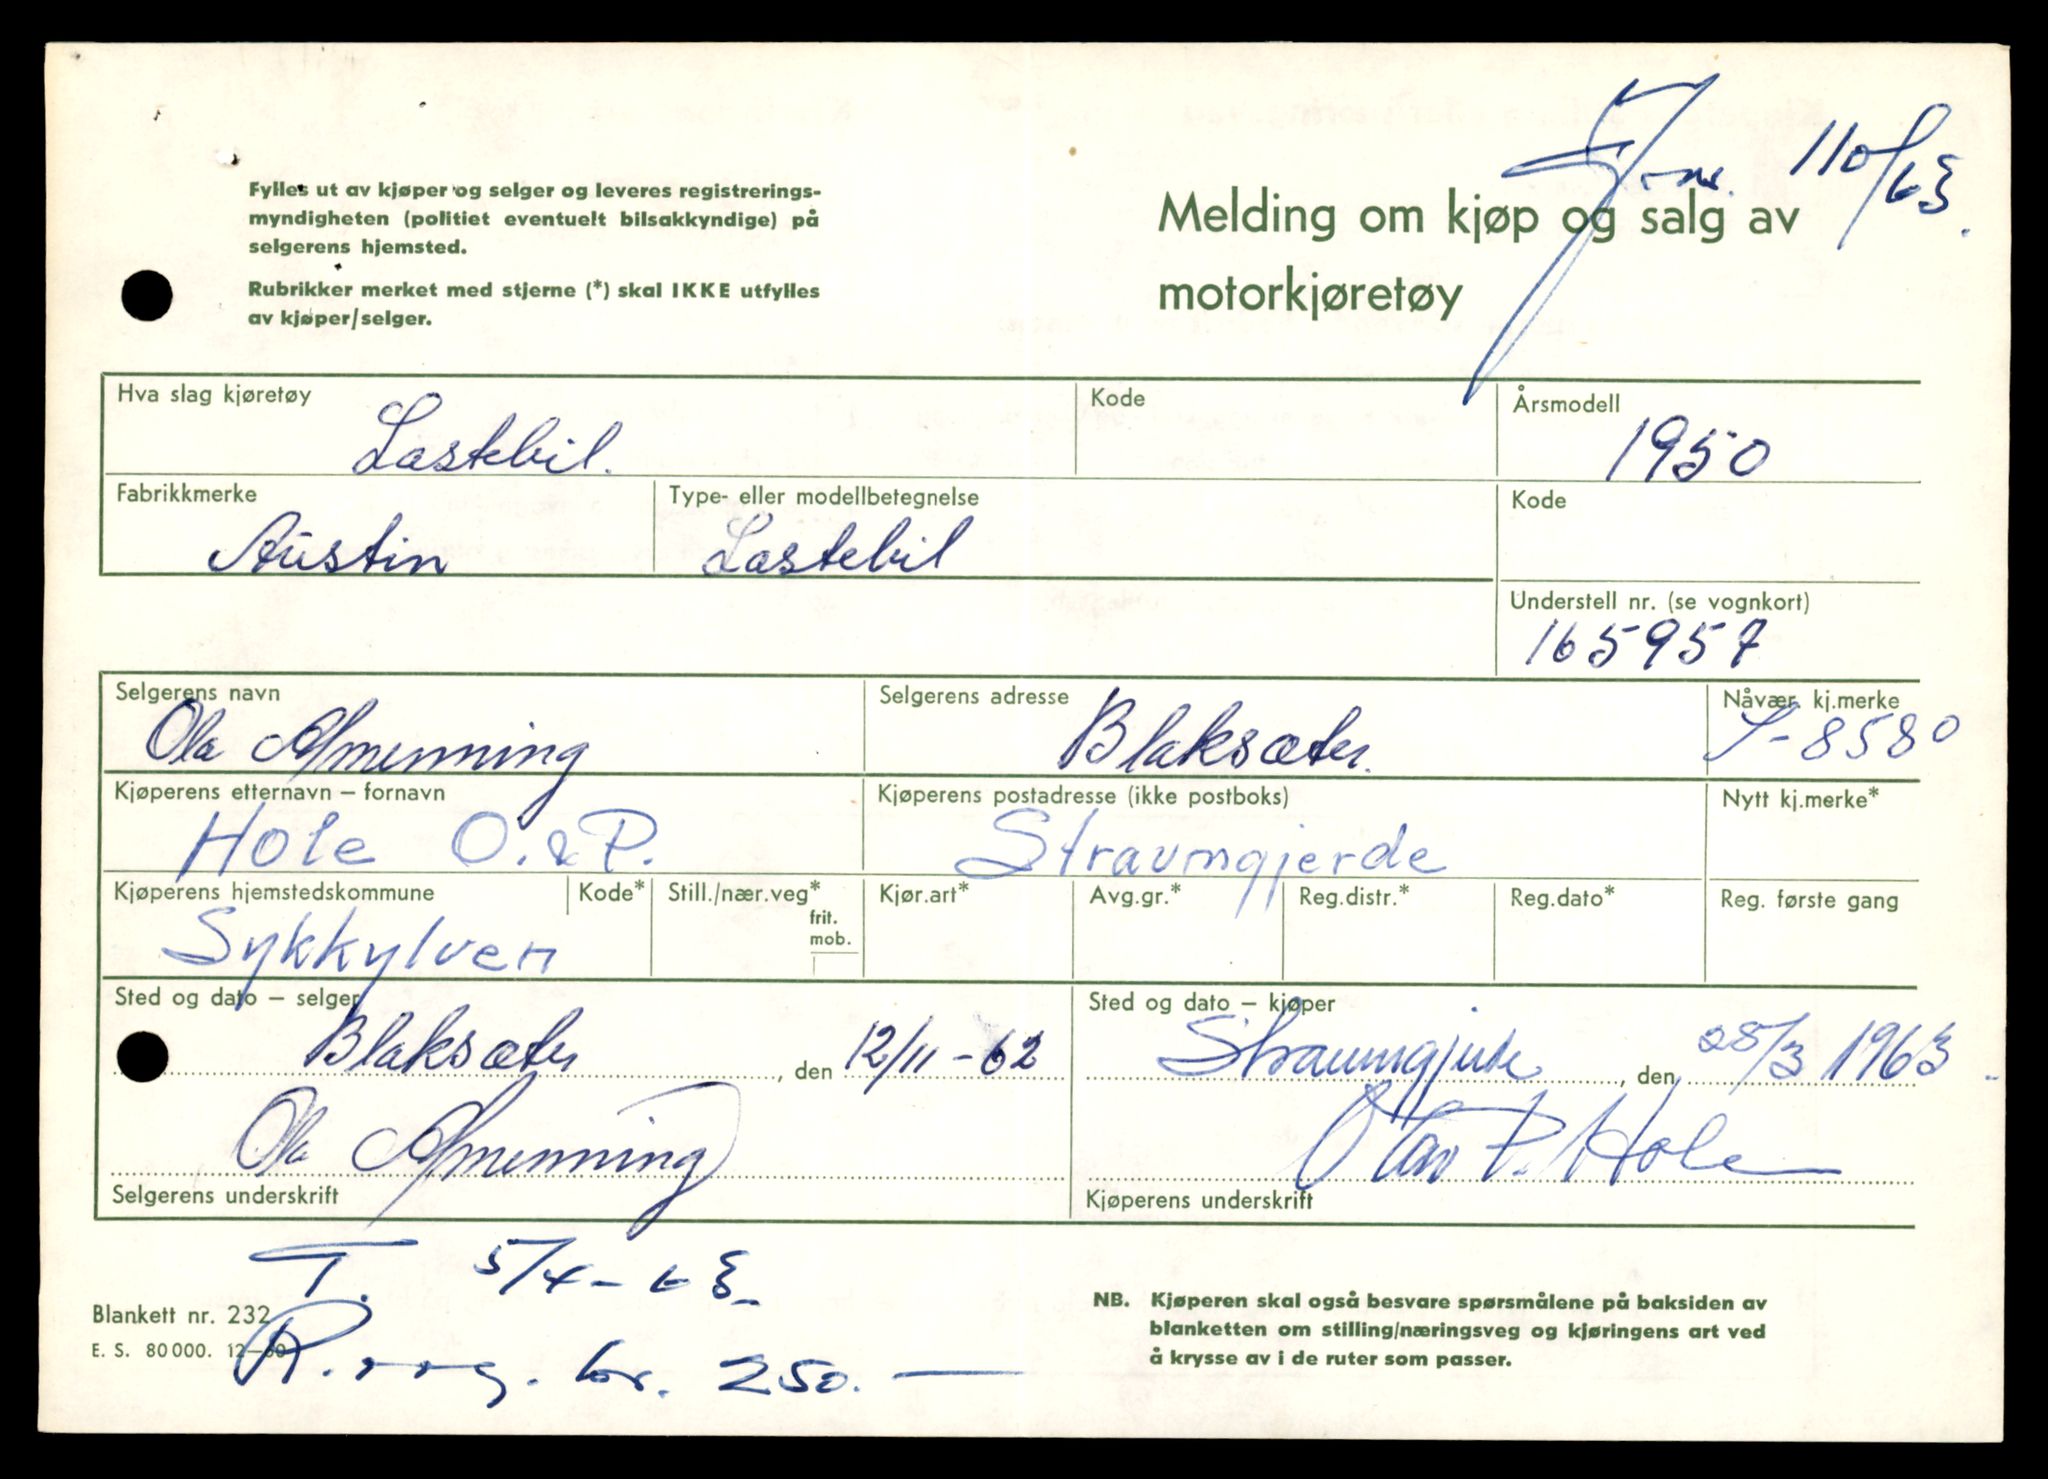 J.nr. 110/63.
Fylles ut av kjøper og selger og leveres registrerings-
myndigheten (politiet eventuelt bilsakkyndige) på
selgerens hjemsted.
Rubrikker merket med stjerne (*) skal IKKE utfylles
av kjøper/selger.
Melding om kjøp og salg av
motorkjøretøy
Hva slag kjøretøy Kode Årsmodell
Lastebil. 1950
Fabrikkmerke Type- eller modellbetegnelse Kode
Austin Lastebil
Understell nr. (se vognkort)
165957
Selgerens navn Selgerens adresse Nåvær. kj.merke
Ola Almenning Blaksæter. S-8580
Kjøperens etternavn – fornavn Kjøperens postadresse (ikke postboks) Nytt kj.merke*
Hole O. & P. Straumgjerde
Kjøperens hjemstedskommune Kode* Still./nær.veg* Kjør.art* Avg.gr.* Reg.distr.* Reg.dato* Reg. første gang
frit.
mob.
Sykkylven
Sted og dato – selger Sted og dato – kjøper
Blaksæter, den 12/11-62 Straumgjerde, den 28/3 1963.
Ola Almenning Olav P. Hole
Selgerens underskrift Kjøperens underskrift
T. 5/4-63.
Blankett nr. 232
E. S. 80 000. 12–60
kr. 250.—
NB. Kjøperen skal også besvare spørsmålene på baksiden av
blanketten om stilling/næringsveg og kjøringens art ved
å krysse av i de ruter som passer.